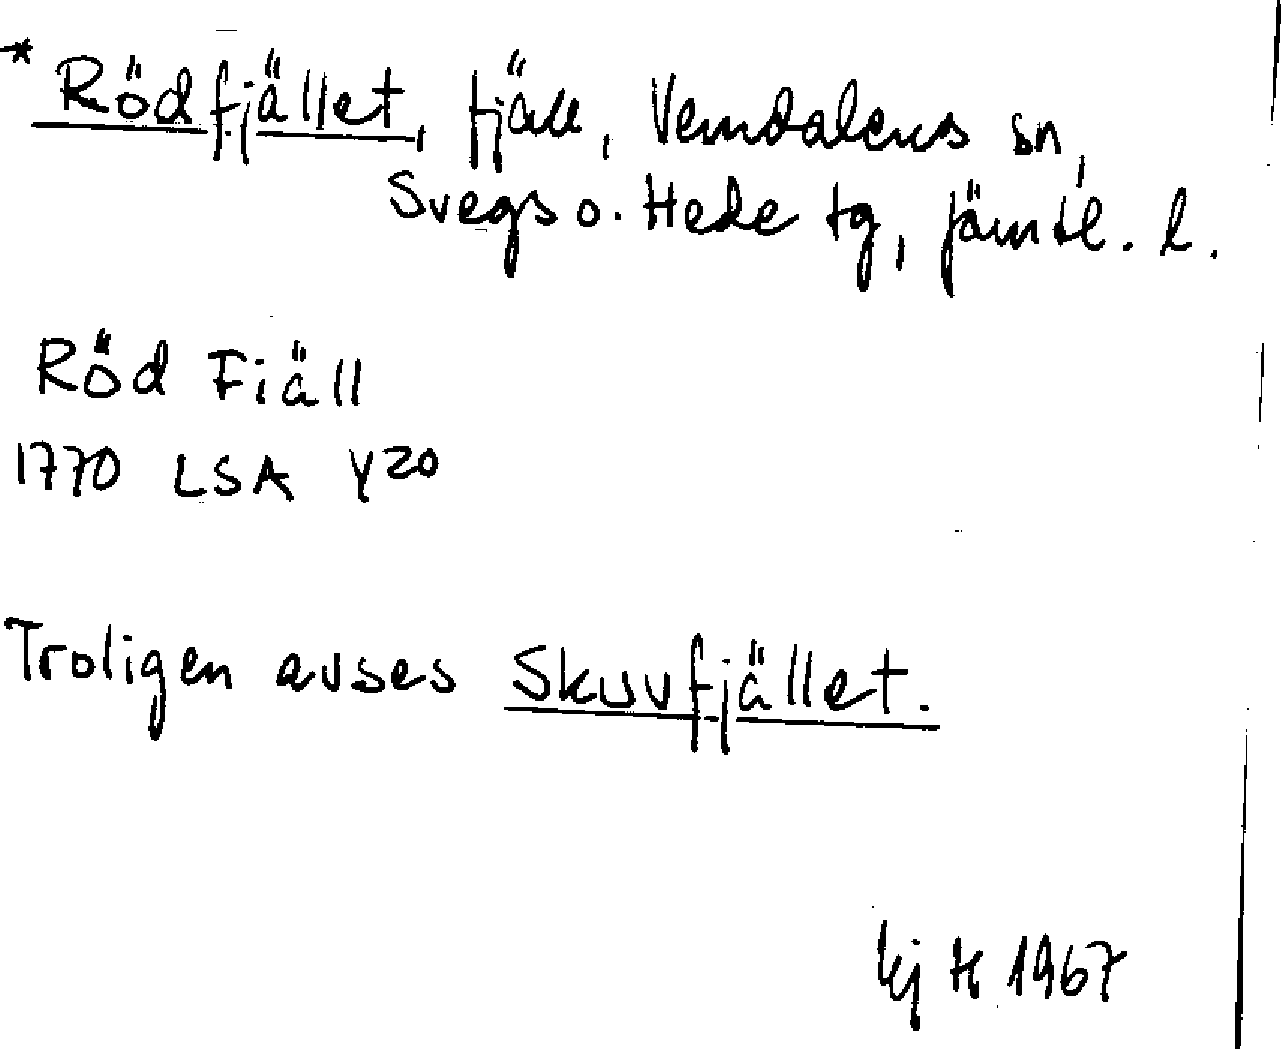 * Rödfjället, fjäll, Vemdalens sn,
Svegs o. Hede tg, Jämtl. l.
Röd Fiäll
1770 LSA Y20
Troligen avses Skuvfjället.
1967